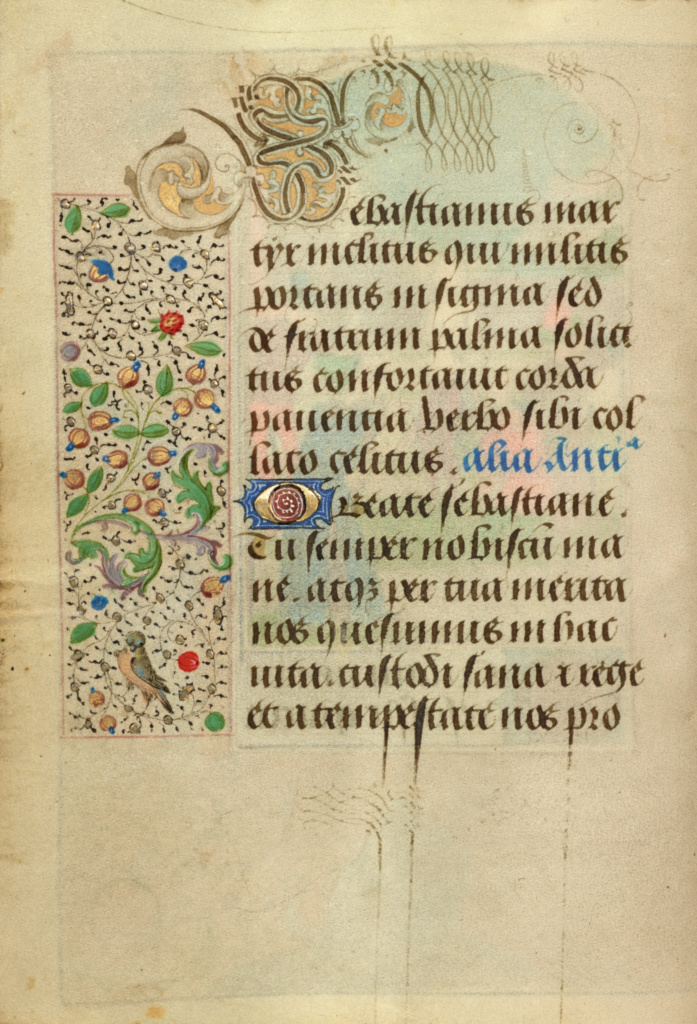 Sebastianus mar
tyr inclitus qui militis
portans insigma sed
de fratrum palma solici
tus confortauit corda
pauentia verbo sibi col
lato celitus. alia Antiª
O Beate sebastiane.
Tu semper nobiscū ma
ne. atqꝫ per tua merita
nos quesumus in hac
uita. custodi sana ⁊ rege
et a tempestate nos pro